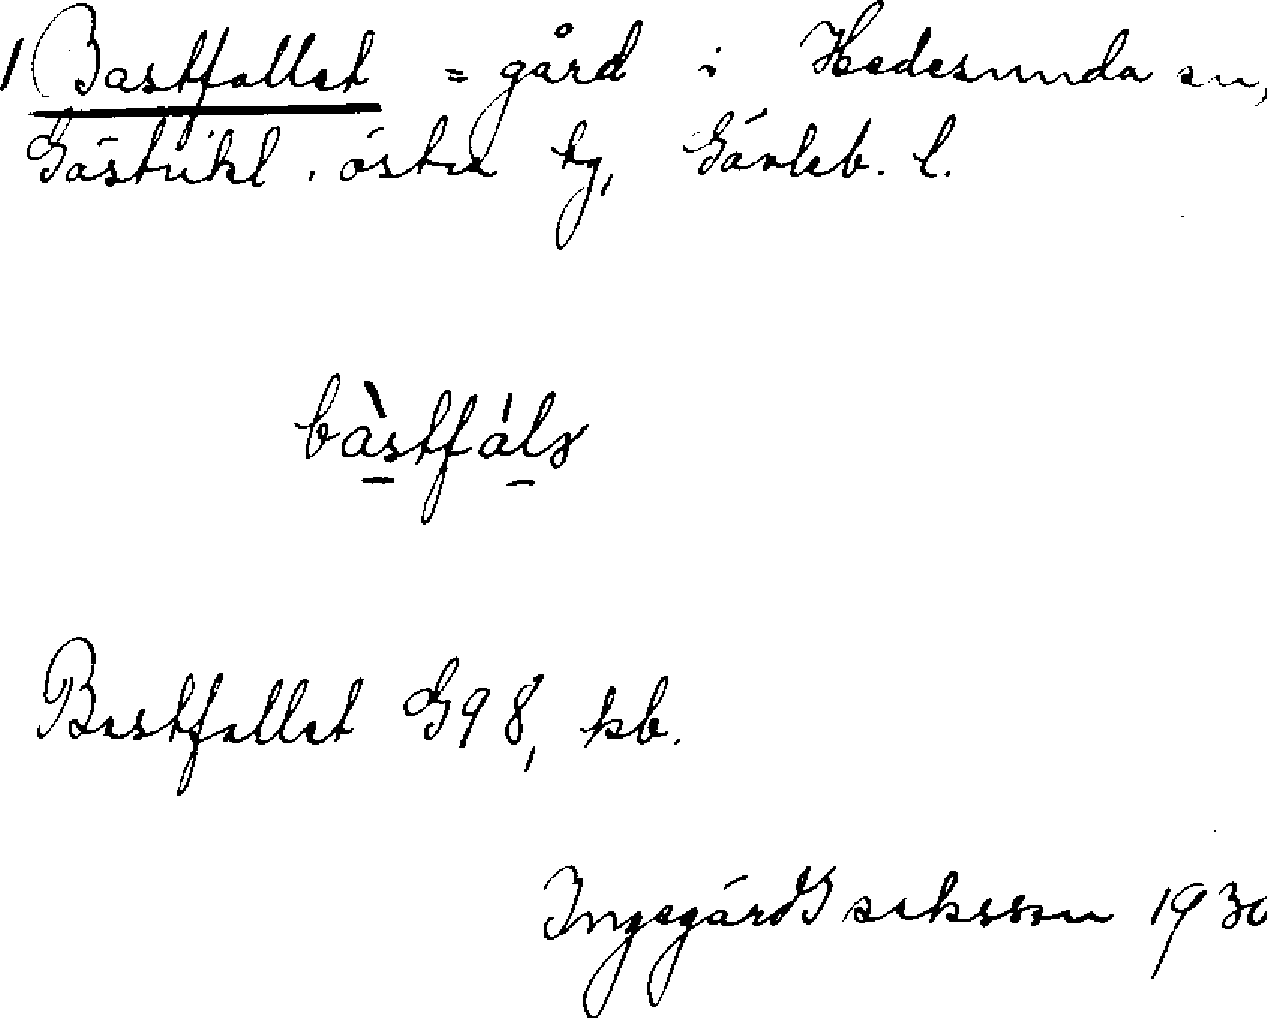 1 Bastfallet = gård i Hedesunda sn,
Gästrikl. östra tg, Gävleb. l.
bàstfálə
Bastfallet G98, kb.
Ingegärd Isaksson 1930